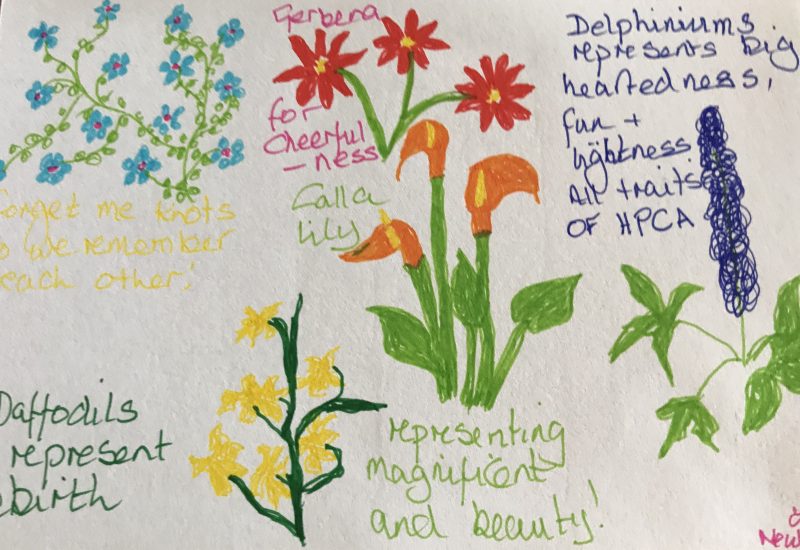 Gerbera
for
Cheerful
-ness
Delphiniums
represents Big
heartedness,
fun +
lightness
All traits
OF HPCA
forget me knots
so we remember
each other!
Calla
Lily
representing
magnificent
and beauty!
Daffodils
represent
rebirth
&
New